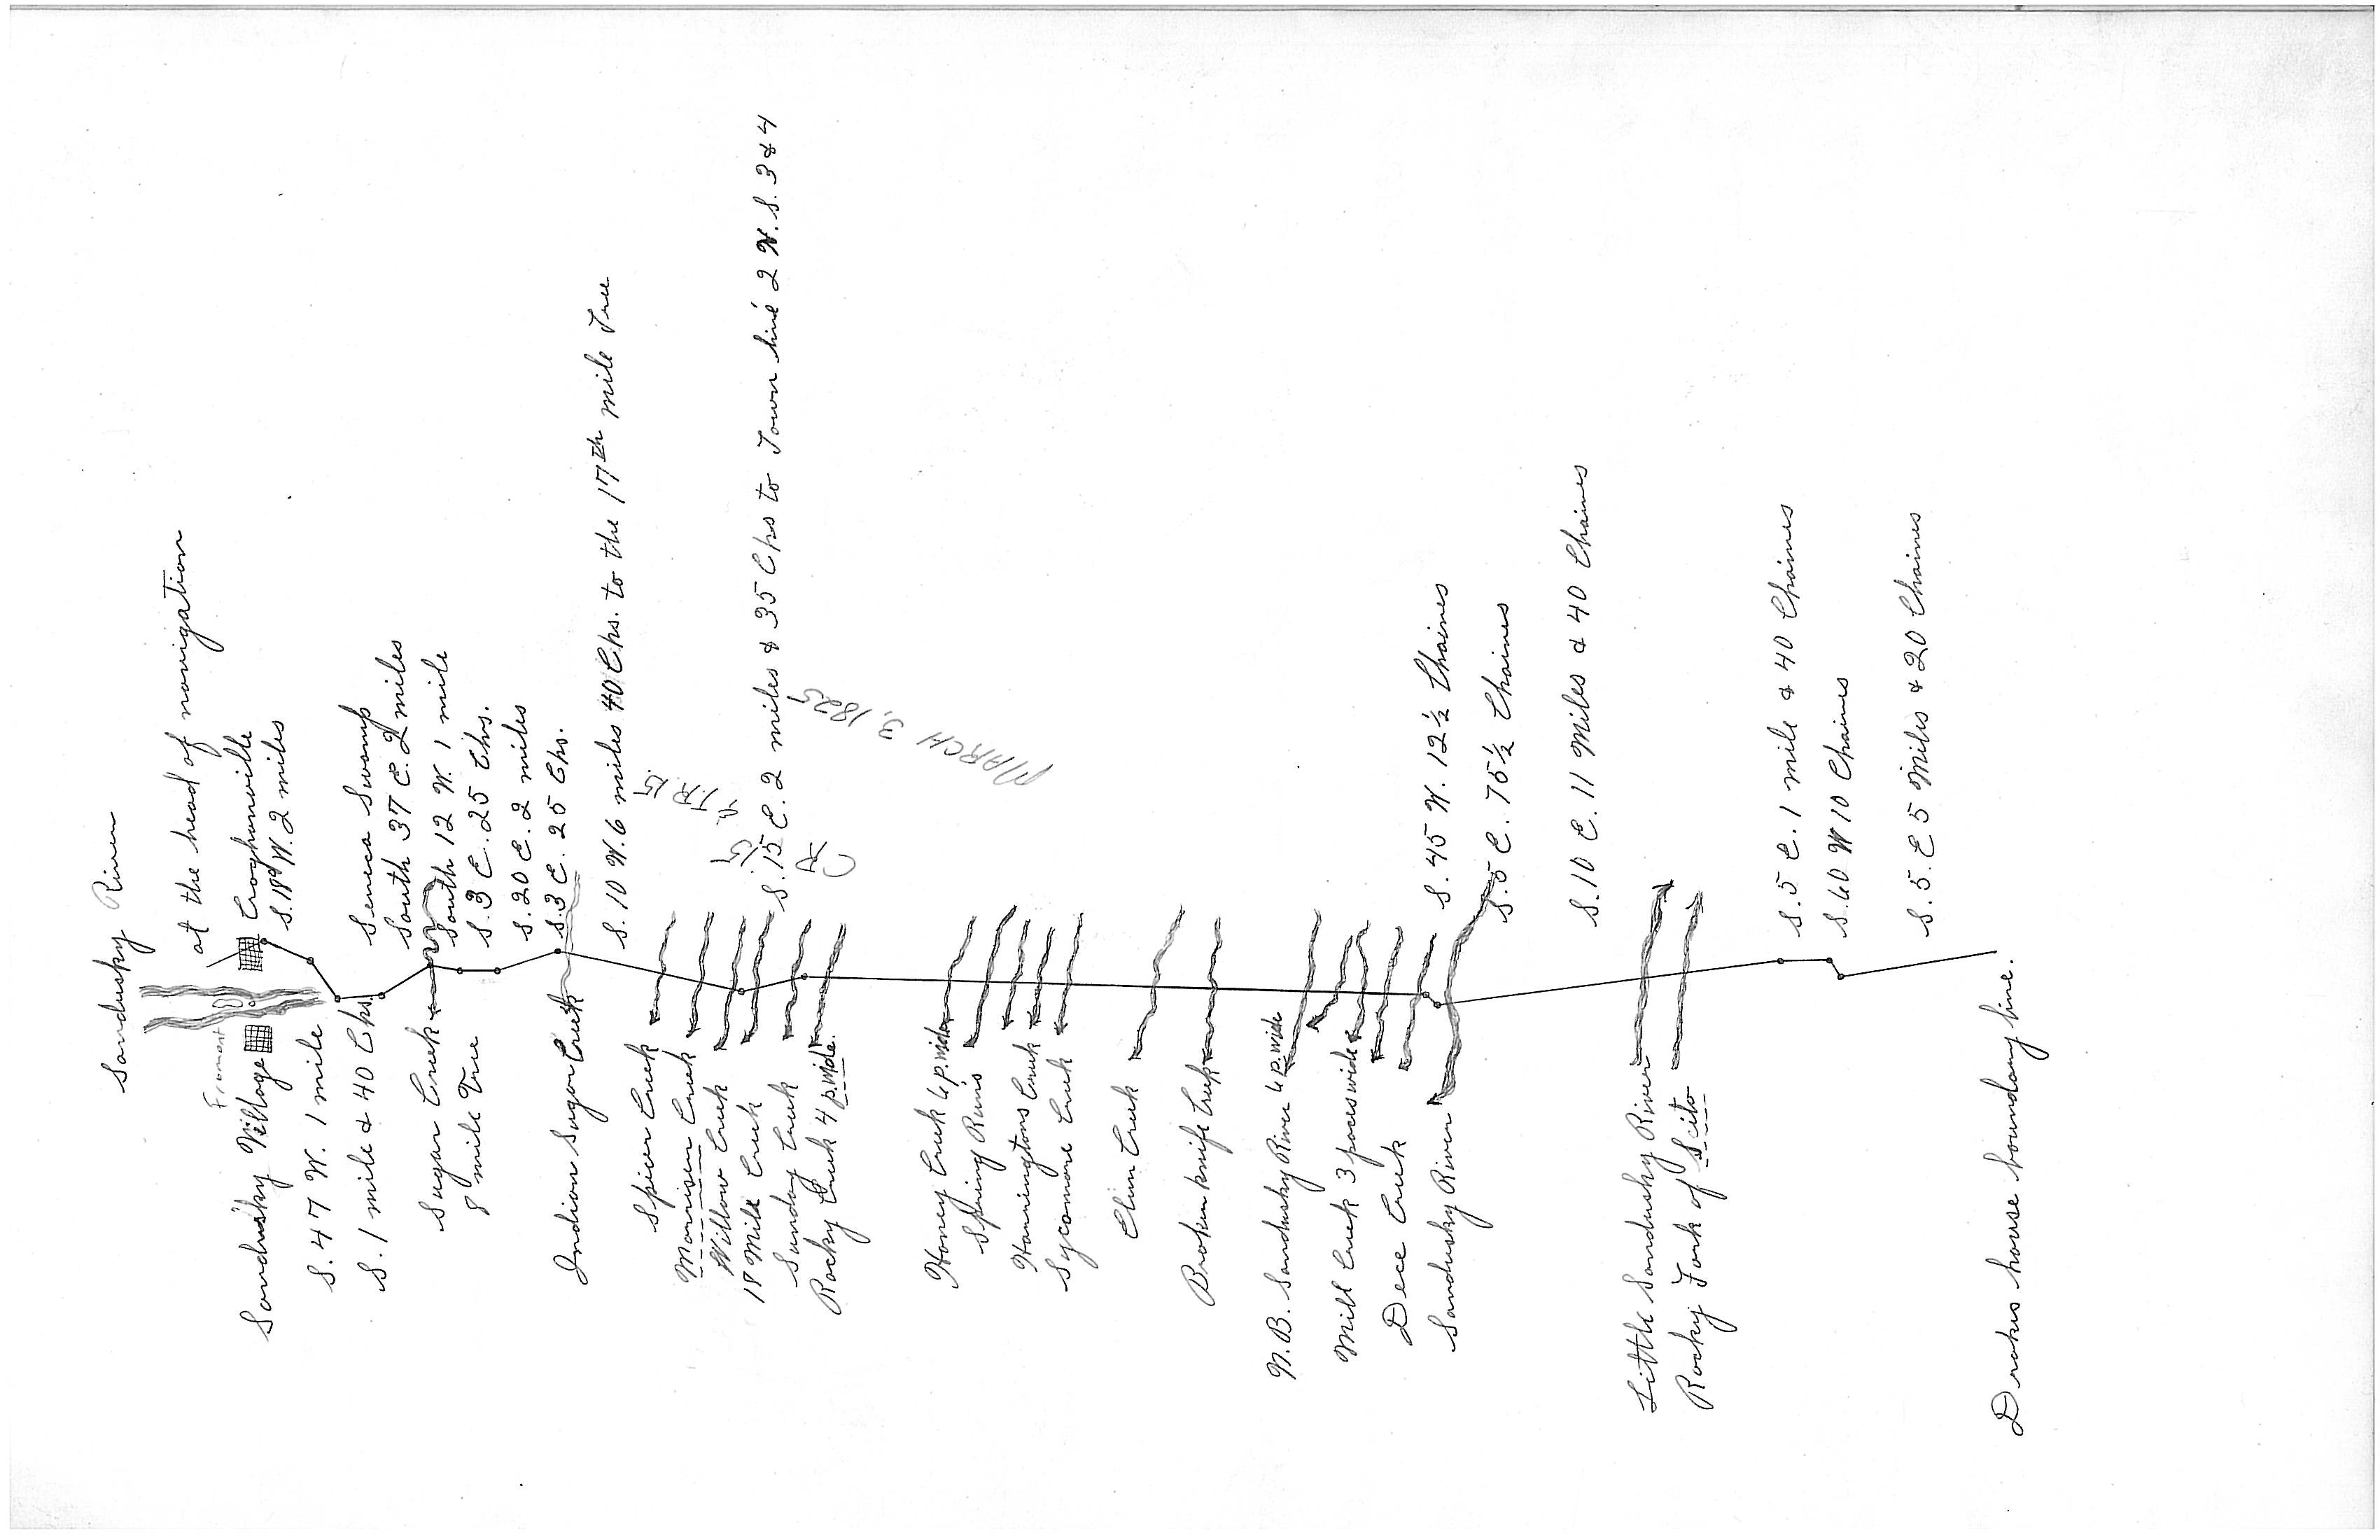 Sandusky River
at the head of navigation
Croghanville
Fremont
Sandusky Village
S. 18° W. 2 miles
S. 47 W. 1 mile
Seneca Swamp
S. 1 mile & 40 Chs.
South 37 E. 2 miles
Sugar Creek
South 12 W. 1 mile
8 mile Tree
S. 3 E. 25 Chs.
S. 20 E. 2 miles
S. 3 E. 25 Chs.
Indian Sugar Creek
S. 10 W. 6 miles 40 Chs. to the 17th mile Tree
Spicer Creek
Morrison Creek
Willow Creek
18 Mile Creek
S. 15 E. 2 miles & 35 Chs to Town line 2 N. S. 3 & 4
Sunday Creek
Rocky Creek 4 p. wide.
MARCH 3, 1825
Honey Creek 6 p. wide
Spring Runs
Harringtons Creek
Sycamore Creek
Elim Creek
Brokenknife Creek
N.B. Sandusky River 6 p. wide
Mill Creek 3 paces wide
Dece Creek
S. 45 W. 12½ Chaines
Sandusky River
S. 5 E. 75½ Chaines
S. 10 E. 11 Miles & 40 Chaines
Little Sandusky River
Rocky Fork of Scito
S. 5 E. 1 mile & 40 Chaines
S. 60 W 10 Chaines
S. 5. E 5 Miles & 20 Chaines
Drakes house boundary line.